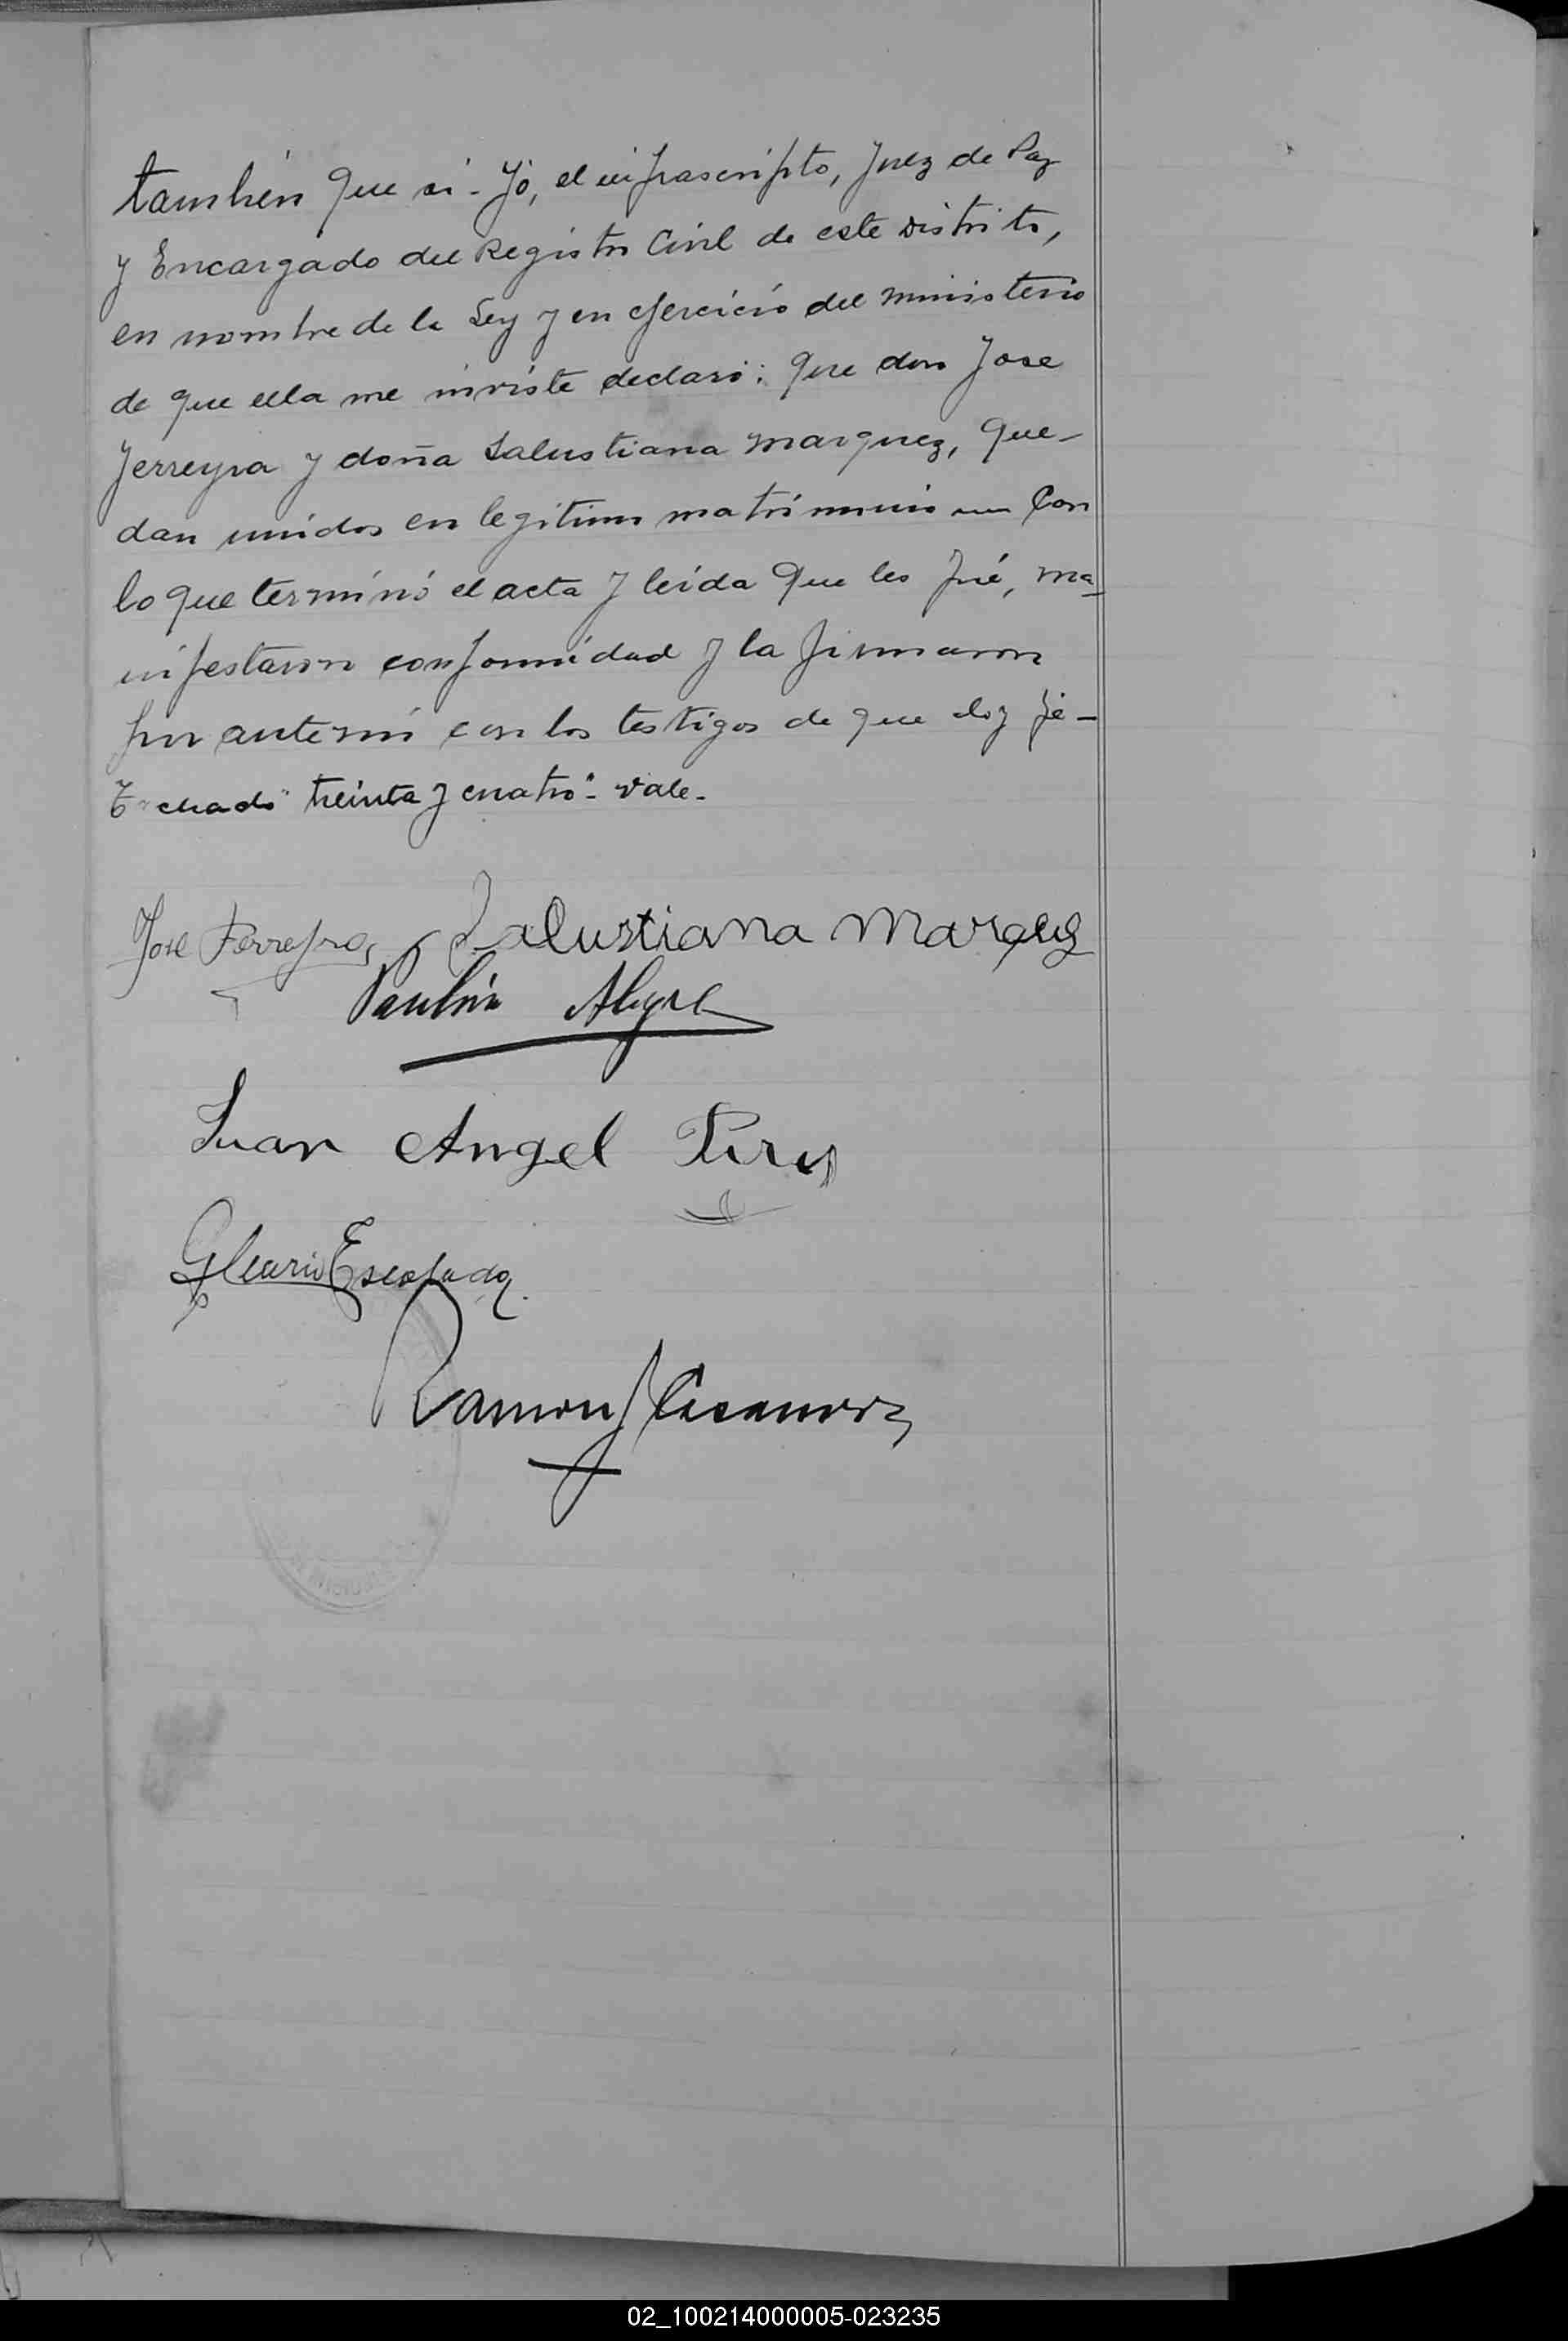 también que si - Yó, el infrascripto, Juez de Paz
y Encargado del Registro Civil de este distrito,
en nombre de la Ley y en ejercicio del ministerio
de que ella me inviste declaró: que don Jose
Ferreyra y doña Salustiana Marquez, que-
dan unidos en legitimo matrimonio — Con
lo que terminó el acta y leida que les fué, ma-
nifestaron conformidad y la firmaron
por ante mi con los testigos de que doy fé -
Tachado "treinta y cuatro" - vale -
José Ferreyra Salustiana Marquez
Paulin Alegre
Juan Angel
Ramon J Casanova
02_100214000005-023235